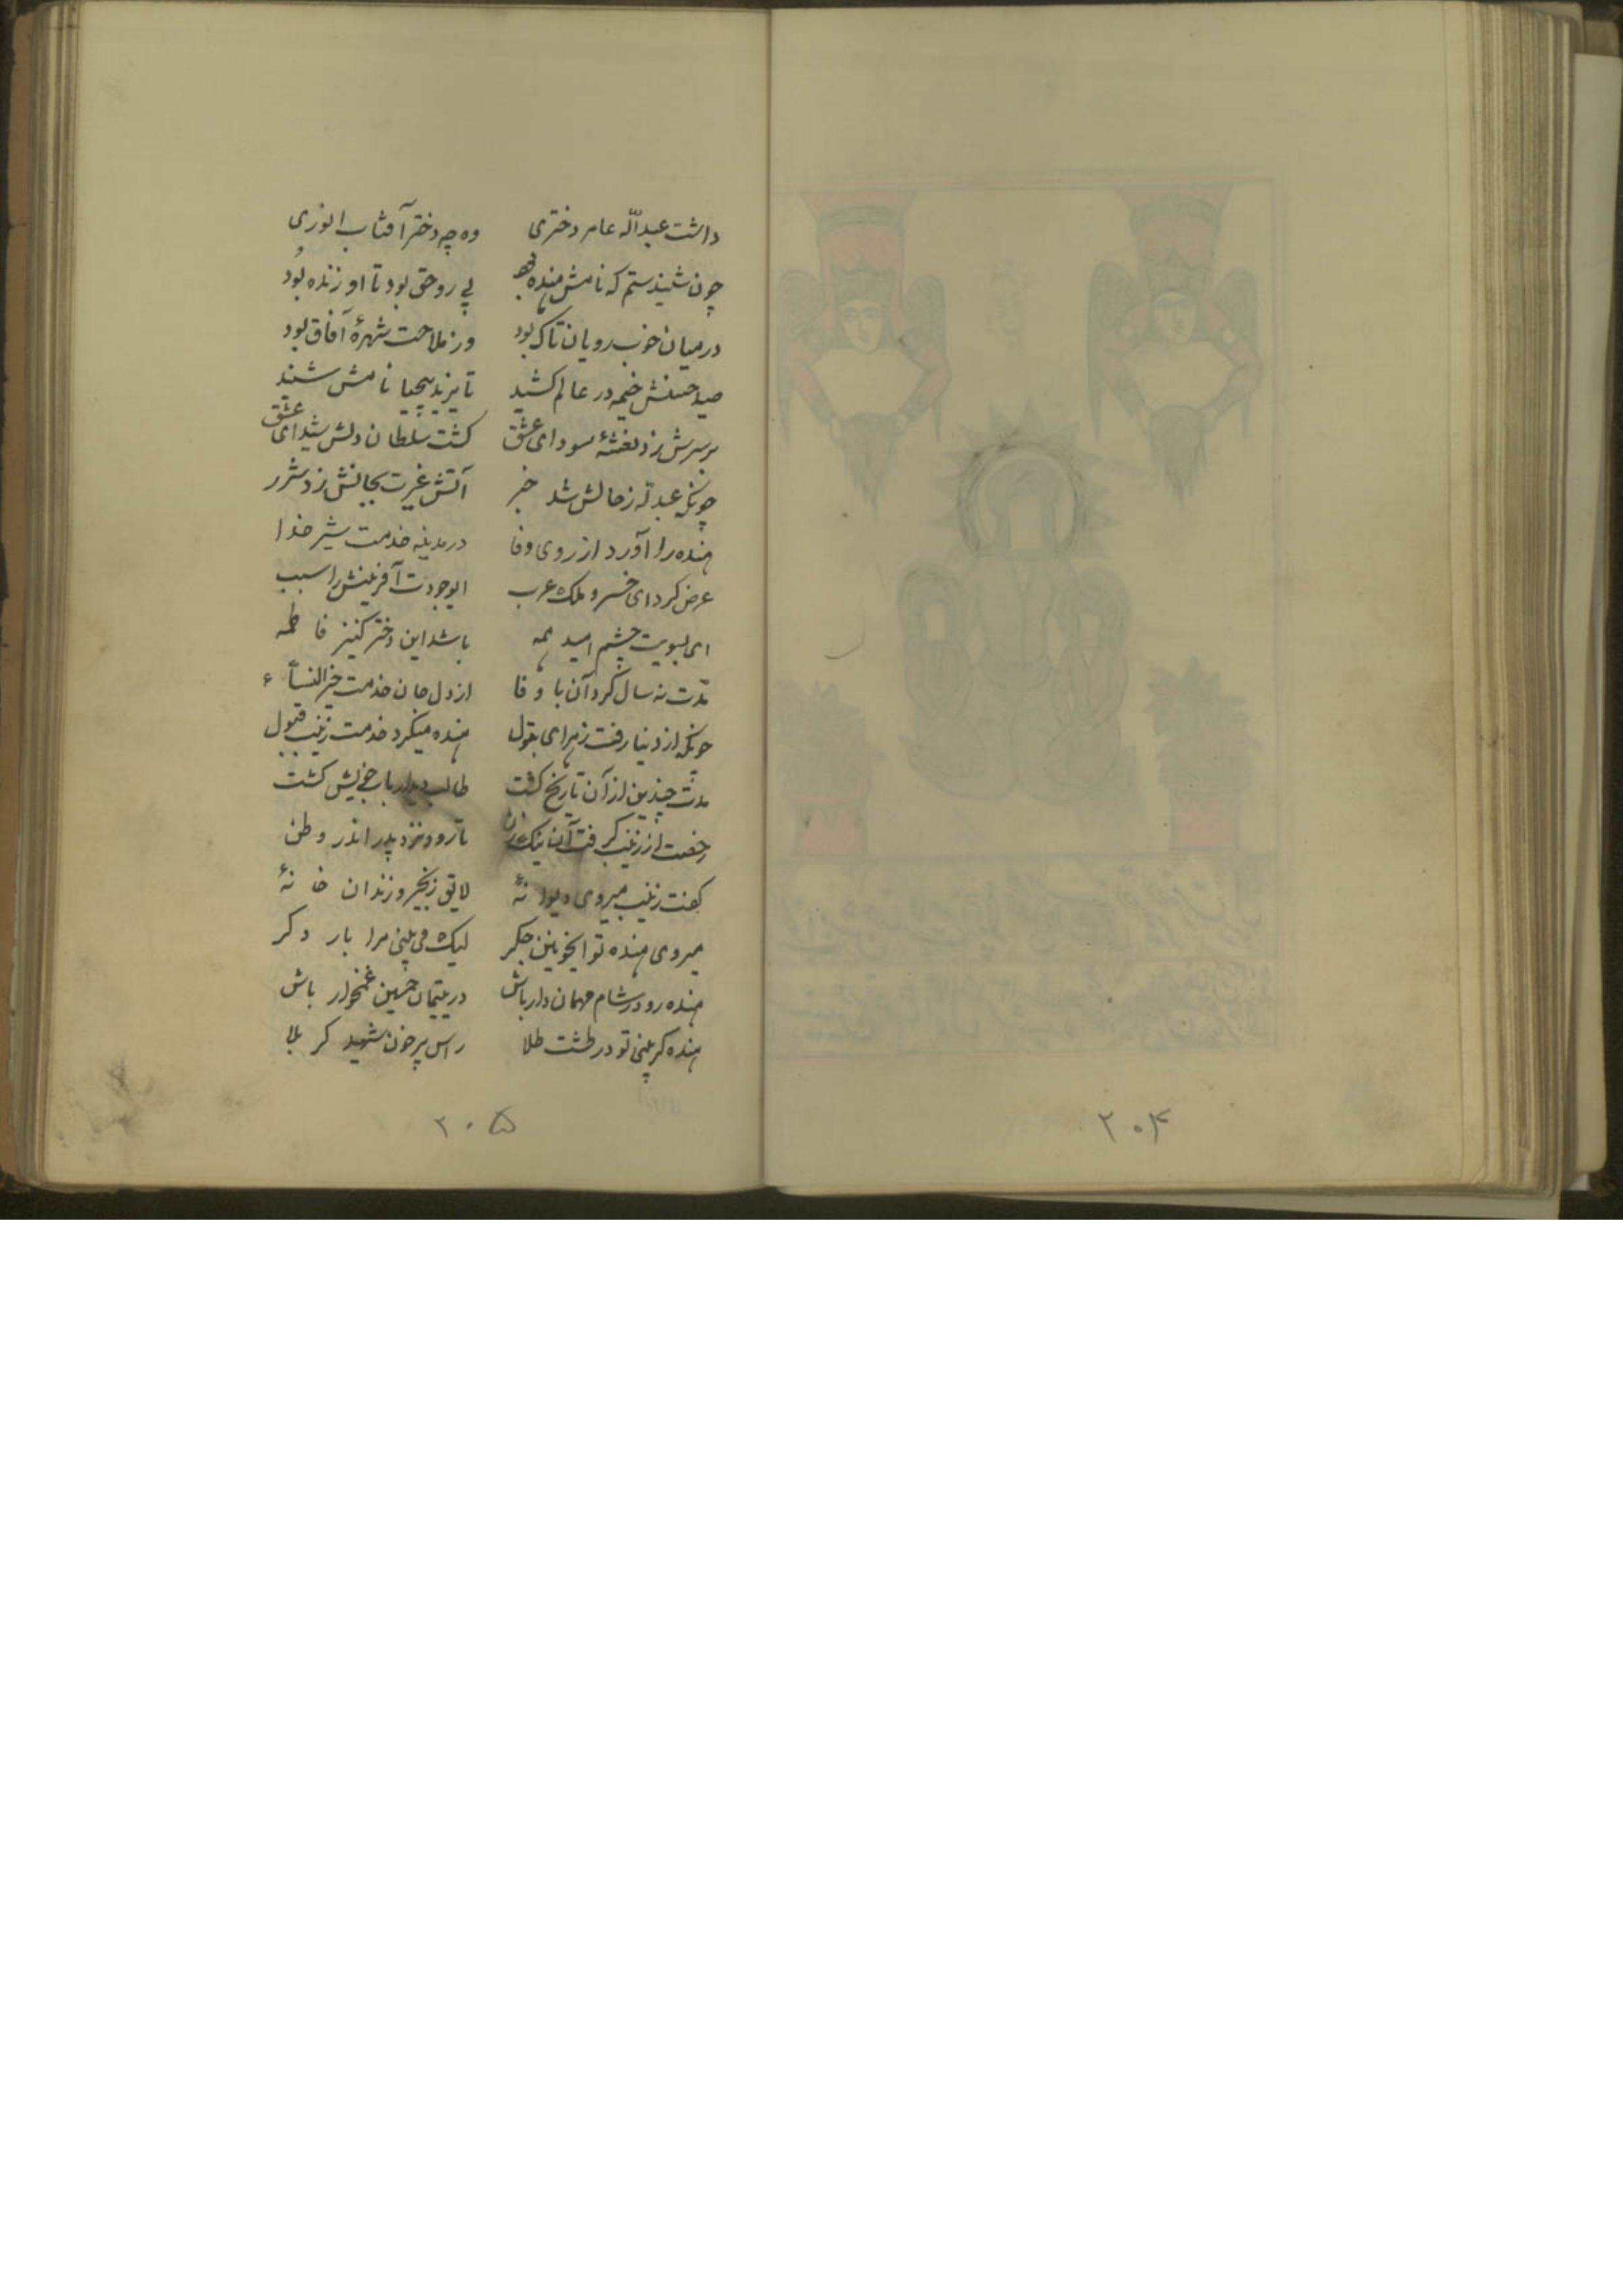 داشت عبدالله عامر دختری وه چه دختر آفتاب انوری
چون شنیدستم که نامش هنده بود پی روحی بود تا او زنده بود
در میان خوب رویان تاک بود ور ملاحت شهرهٔ آفاق بود
صید حسنش خیمه در عالم کشید تا یزید بیحیا نامش شنید
بر سرش زد نغشهٔ سودای عشق کشت سلطان دلش شیدای عشق
چونکه عبدله ز حالش شد خبر آتش غیرت بجانش زد شرر
هنده را آورد از روی وفا در مدینه خدمت شیر خدا
عرض کرد ای خسرو ملک عرب ایوجودت آفرینش را سبب
ای بسویت چشم امید همه باشد این دختر کنیز فاطمه
مدت نه سال کرد آن با وفا از دل جان خدمت خیر النسآء
چونکه از دنیا رفت زهرای بتول هنده میکرد خدمت زینب قبول
مدت چندین از آن تاریخ گذشت طالب دیدار باب خویش کشت
رخصت از زینب کرفت آن نیک زن تا رود نزد پدر اندر وطن
کفت زینب میروی دیوانهٔ لایق زنجیر و زندان خانهٔ
میروی هنده تو ایخونین جکر لیک می بینی مرا بار دکر
هنده رو در شام مهمان دار باش در یتیمان حسین غمخوار باش
هنده کر بینی تو در طشت طلا راس پر خون شهید کربلا
۲۰۴
۲۰۵